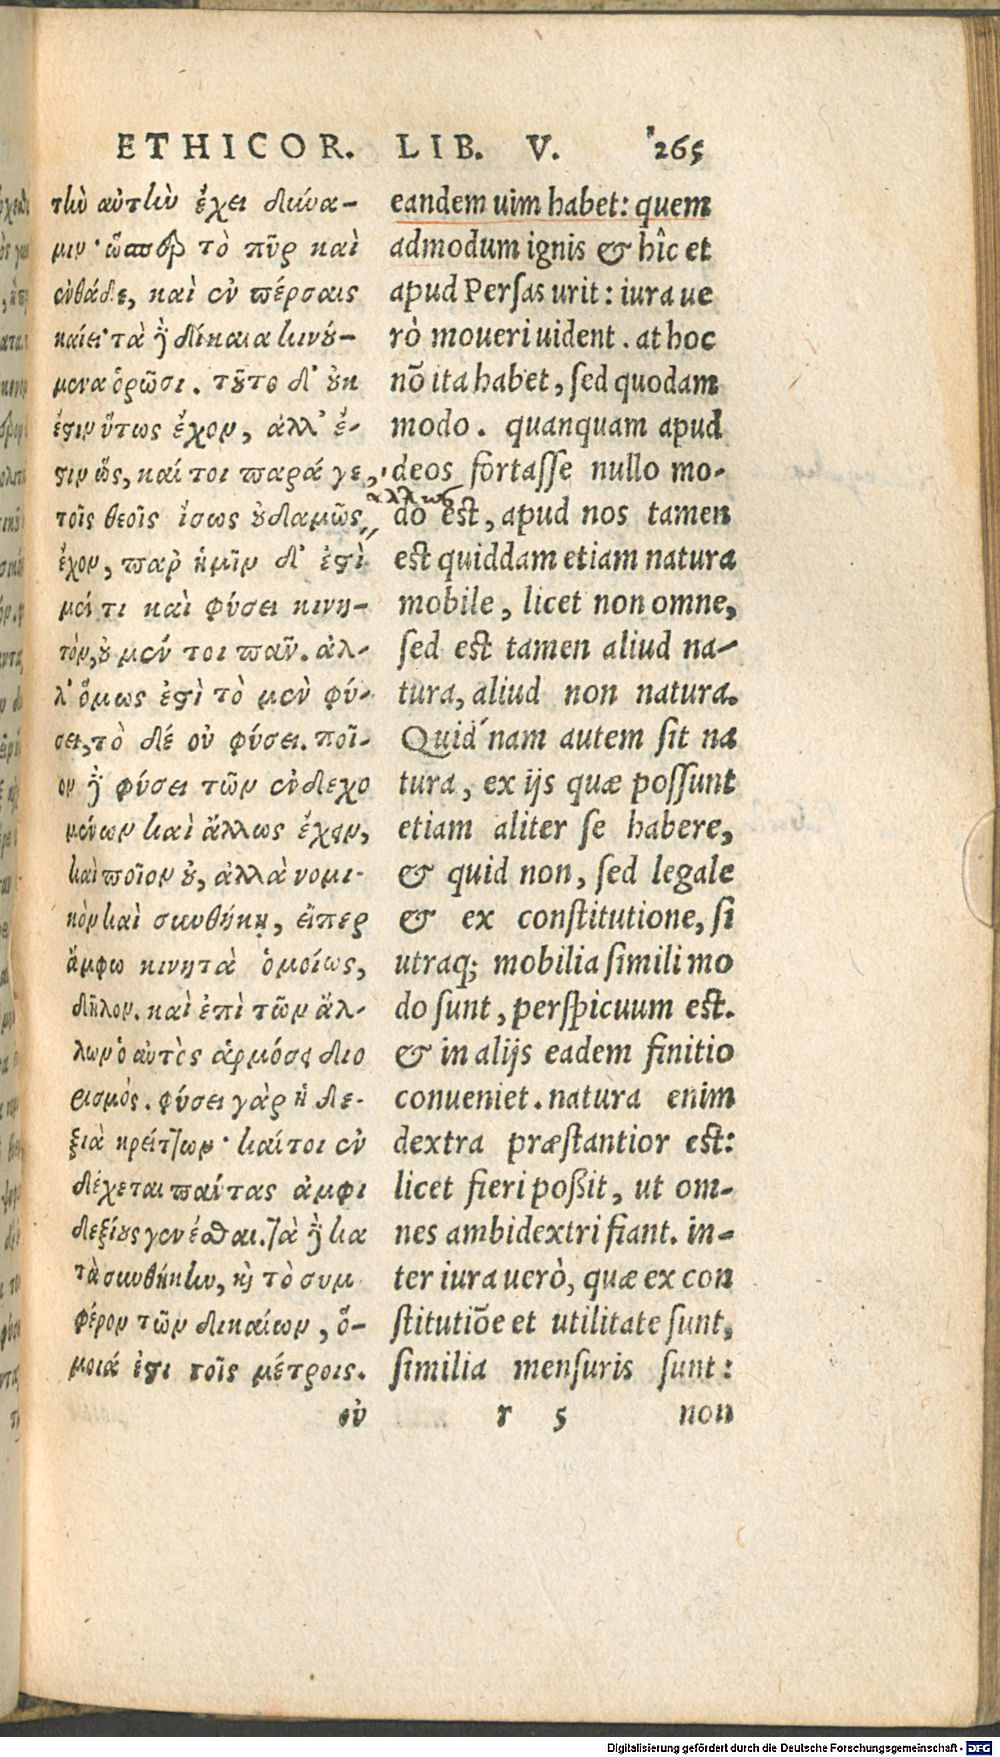 ETHICOR. LIB. V. 265
τὴν αὐτὴν ἔχει δύνα-
μιν· ὥσπερ τὸ πῦρ καὶ
ἐνθάδε, καὶ ἐν πέρσαις
καίει· τὰ δὲ δίκαια κινού-
μενα ὁρῶσι. τοῦτο δ' οὐκ
ἔστιν οὕτως ἔχον, ἀλλ' ἔ-
στιν ὥς, καί τοι παρά γε
τοῖς θεοῖς ἴσως οὐδαμῶς
ἄλλως
ἔχον, παρ ἡμῖν δ' ἐστὶ
μέν τι καὶ φύσει κινη-
τόν, οὐ μέν τοι πᾶν. ἀλ-
λ' ὅμως ἐστὶ τὸ μὲν φύ-
σει, τὸ δέ οὐ φύσει. ποῖ-
ον δὲ φύσει τῶν ἐνδεχο
μένων καὶ ἄλλως ἔχειν,
καὶ ποῖον οὐ, ἀλλὰ νομι-
κὸν καὶ συνθήκῃ, εἴπερ
ἄμφω κινητὰ ὁμοίως,
δῆλον. καὶ ἐπὶ τῶν ἄλ-
λων ὁ αὐτὸς ἁρμόσει διο
ρισμός. φύσει γὰρ ἡ δε-
ξιὰ κρείττων· καίτοι ἐν
δέχεται πάντας ἀμφι
δεξίους γενέσθαι. τὰ δὲ κα
τὰ συνθήκην, καὶ τὸ συμ
φέρον τῶν δικαίων, ὅ-
μοιά ἐστι τοῖς μέτροις.
οὐ
eandem uim habet: quem
admodum ignis & hîc et
apud Persas urit: iura ue
rò moueri uident. at hoc
nō ita habet, sed quodam
modo. quanquam apud
deos fortasse nullo mo-
do est, apud nos tamen
est quiddam etiam natura
mobile, licet non omne,
sed est tamen aliud na-
tura, aliud non natura.
Quid'nam autem sit na
tura, ex ijs quæ possunt
etiam aliter se habere,
& quid non, sed legale
& ex constitutione, si
utraq; mobilia simili mo
do sunt, perspicuum est.
& in alijs eadem finitio
conueniet. natura enim
dextra præstantior est:
licet fieri poßit, ut om-
nes ambidextri fiant. in-
ter iura uerò, quæ ex con
stitutiōe et utilitate sunt,
similia mensuris sunt:
r 5 non
Digitalisierung gefördert durch die Deutsche Forschungsgemeinschaft - DFG